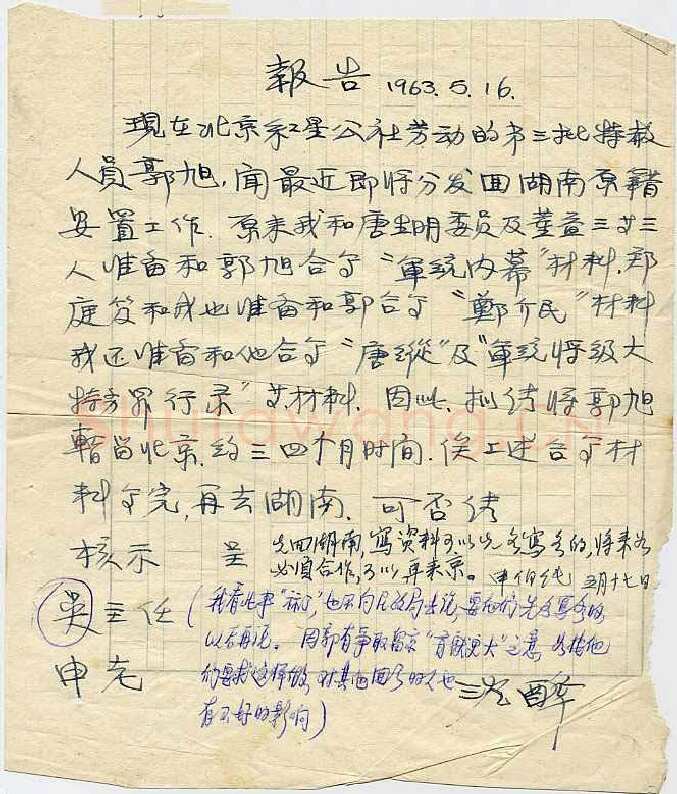 報告 1963.5.16.
現在北京红星公社劳动的第三批特赦
人员郭旭,闻最近即将分发回湖南原籍
安置工作.原来我和唐生明委员及董益三等三
人准备和郭旭合写“軍統内幕”材料.郑
庭笈和我也准备和郭合写“鄭介民”材料
我还准备和他合写“唐縱”及“軍統将级大
特务罪行录”等材料.因此、拟請将郭旭
暫留北京.约三四个月时间.俟上述合写材
料写完,再去湖南.可否請
核示 呈
先回湖南,寫資料可以先各寫各的,将来如
必須合作,可以再来京。申伯纯 五月十七日
吴主任
申老
(我看此事“算了”,也不向公安局去说,要他们先各寫各的
以后再说。因郭有争取留京
他
们要求这样做,对其
有不好的影响)
沈醉